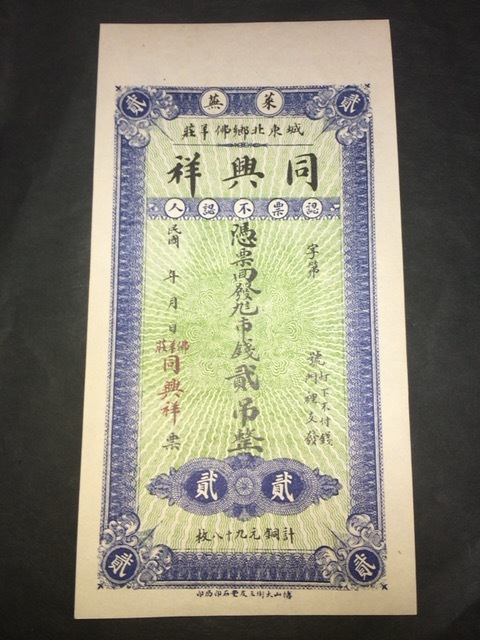 貳 萊蕪 貳
城東北鄉佛羊莊
同興祥
認票不認人
字第 號
灯下不付錢
門裡交發
憑票
發
市錢貳吊整
民國 年 月 日
佛羊莊
同興祥票
貳 貳
計銅元九十八枚
貳 貳
博山大街三友堂石印局印